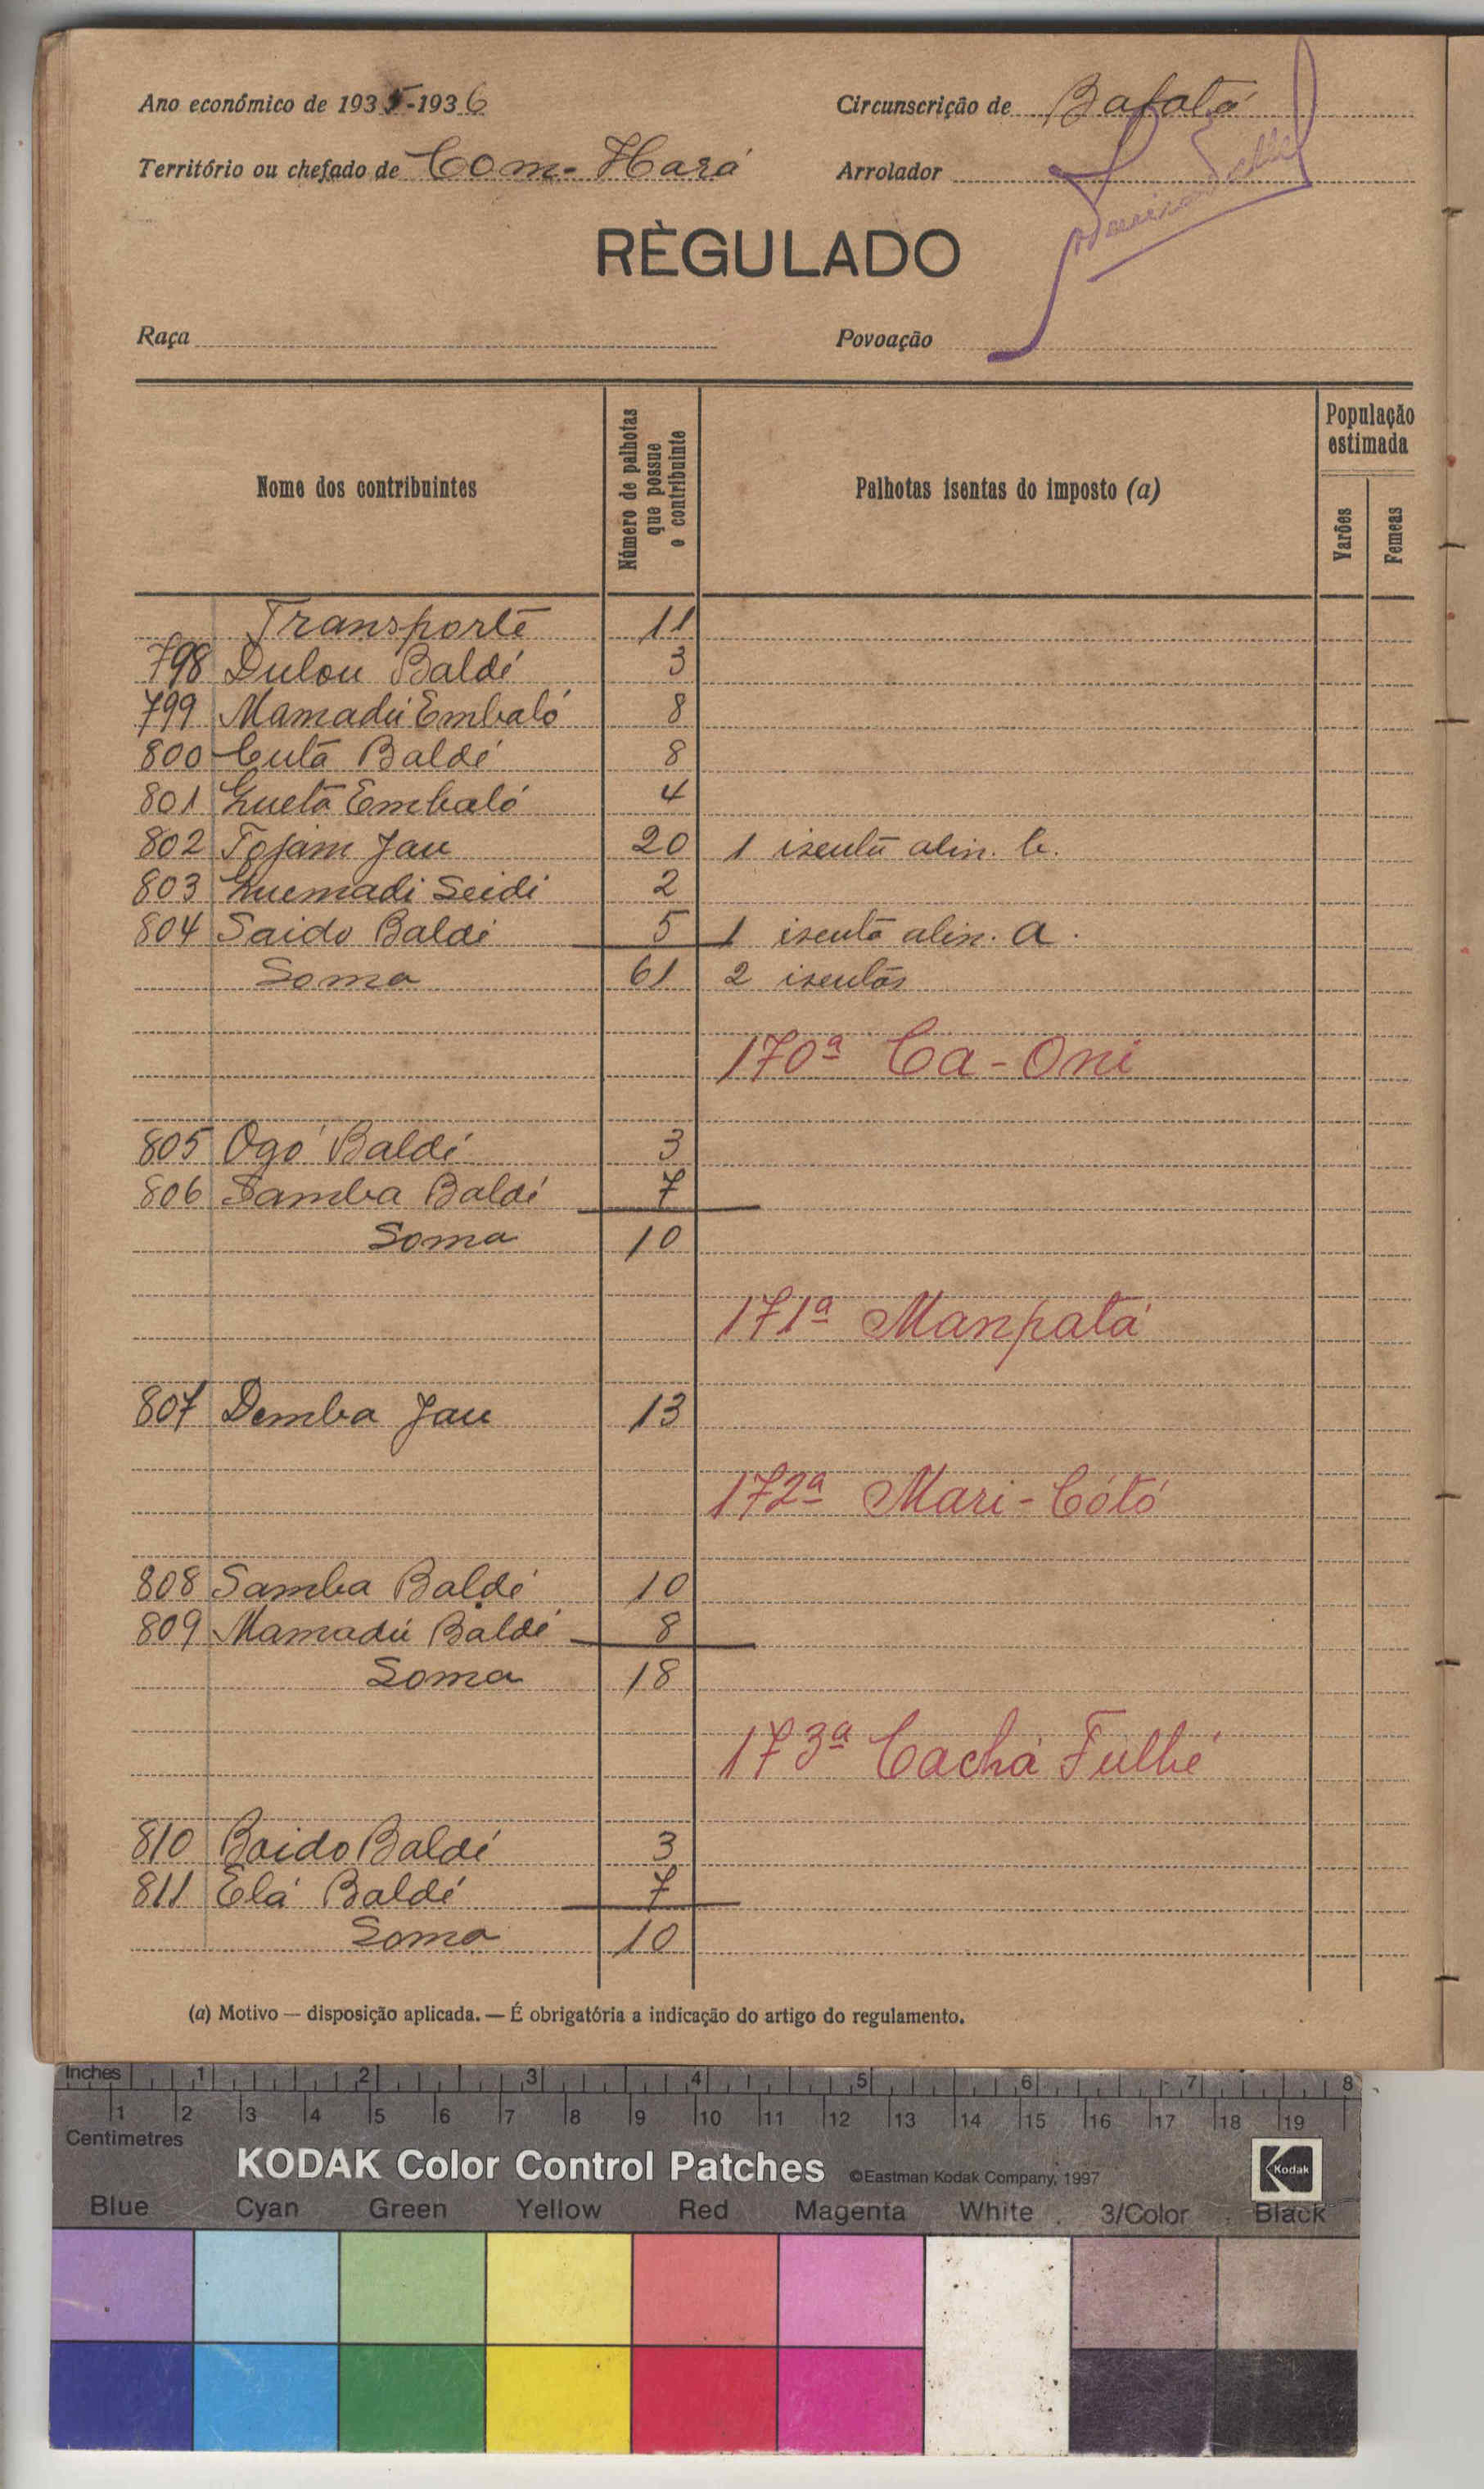 Ano económico de 1935-1936
Circunscrição de Bafatá
Território ou chefado de Com-Hará
Arrolador
RÈGULADO
Raça
Povoação
Nome dos contribuintes
Número de palhotas que possue o contribuinte
Palhotas isentas do imposto (a)
População estimada
Varões
Femeas
Transporte 11
798 Dulou Baldé 3
799 Mamadú Embaló 8
800 Cutá Baldé 8
801 Guetá Embaló 4
802 Tojam Jau 20 1 isenta alin. b.
803 Guemadi Seidi 2
804 Saido Baldé 5 1 isenta alin. a.
Soma 61 2 isentas
170ª Ca-Oni
805 Ogó Baldé 3
806 Samba Baldé 7
Soma 10
171ª Manpatá
807 Demba Jau 13
172ª Mari-Cótó
808 Samba Baldé 10
809 Mamadú Baldé 8
Soma 18
173ª Cachá Fulbé
810 Baido Baldé 3
811 Elá Baldé 7
Soma 10
(a) Motivo — disposição aplicada. — É obrigatória a indicação do artigo do regulamento.
Inches 1 2 3 4 5 6 7 8
1 2 3 4 5 6 7 8 9 10 11 12 13 14 15 16 17 18 19
Centimetres
KODAK Color Control Patches ©Eastman Kodak Company, 1997
Kodak
Blue Cyan Green Yellow Red Magenta White 3/Color Black